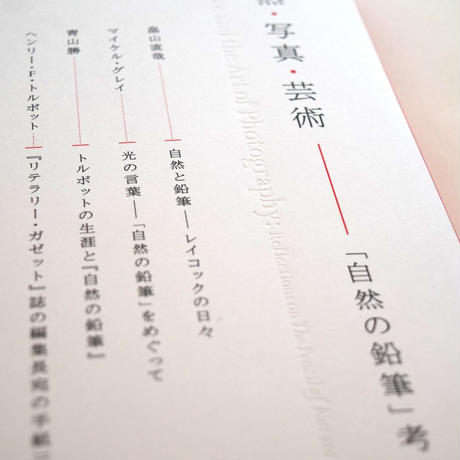 然・写真・芸術――「自然の鉛筆」考
and the Art of Photography: Reflections on The Pencil of Nature
畠山直哉――自然と鉛筆――レイコックの日々
マイケル・グレイ――光の言葉――「自然の鉛筆」をめぐって
青山勝――トルボットの生涯と『自然の鉛筆』
ヘンリー・F・トルボット――『リテラリー・ガゼット』誌の編集長宛の手紙